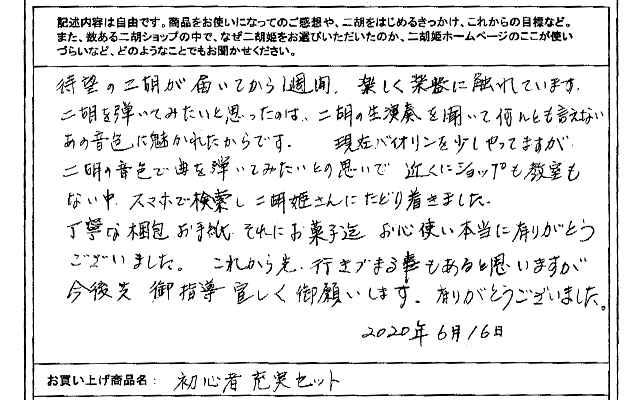 記述内容は自由です。商品をお使いになってのご感想や、二胡をはじめるきっかけ、これからの目標など。
また、数ある二胡ショップの中で、なぜ二胡姫をお選びいただいたのか、二胡姫ホームページのここが使い
づらいなど、どのようなことでもお聞かせください。
待望の二胡が届いてから1週間、楽しく楽器に触れています。
二胡を弾いてみたいと思ったのは、二胡の生演奏を聞いて何んとも言えない
あの音色に魅かれたからです。 現在バイオリンを少しやってますが
二胡の音色で曲を弾いてみたいとの思いで 近くにショップも教室も
ない中、スマホで検索し二胡姫さんにたどり着きました。
丁寧な梱包 お手紙 それにお菓子迄 お心使い本当に有りがとう
ございました。 これから先 行きづまる事もあると思いますが
今後共 御指導 宜しく御願いします。有りがとうございました。
2020年6月16日
お買い上げ商品名： 初心者充実セット